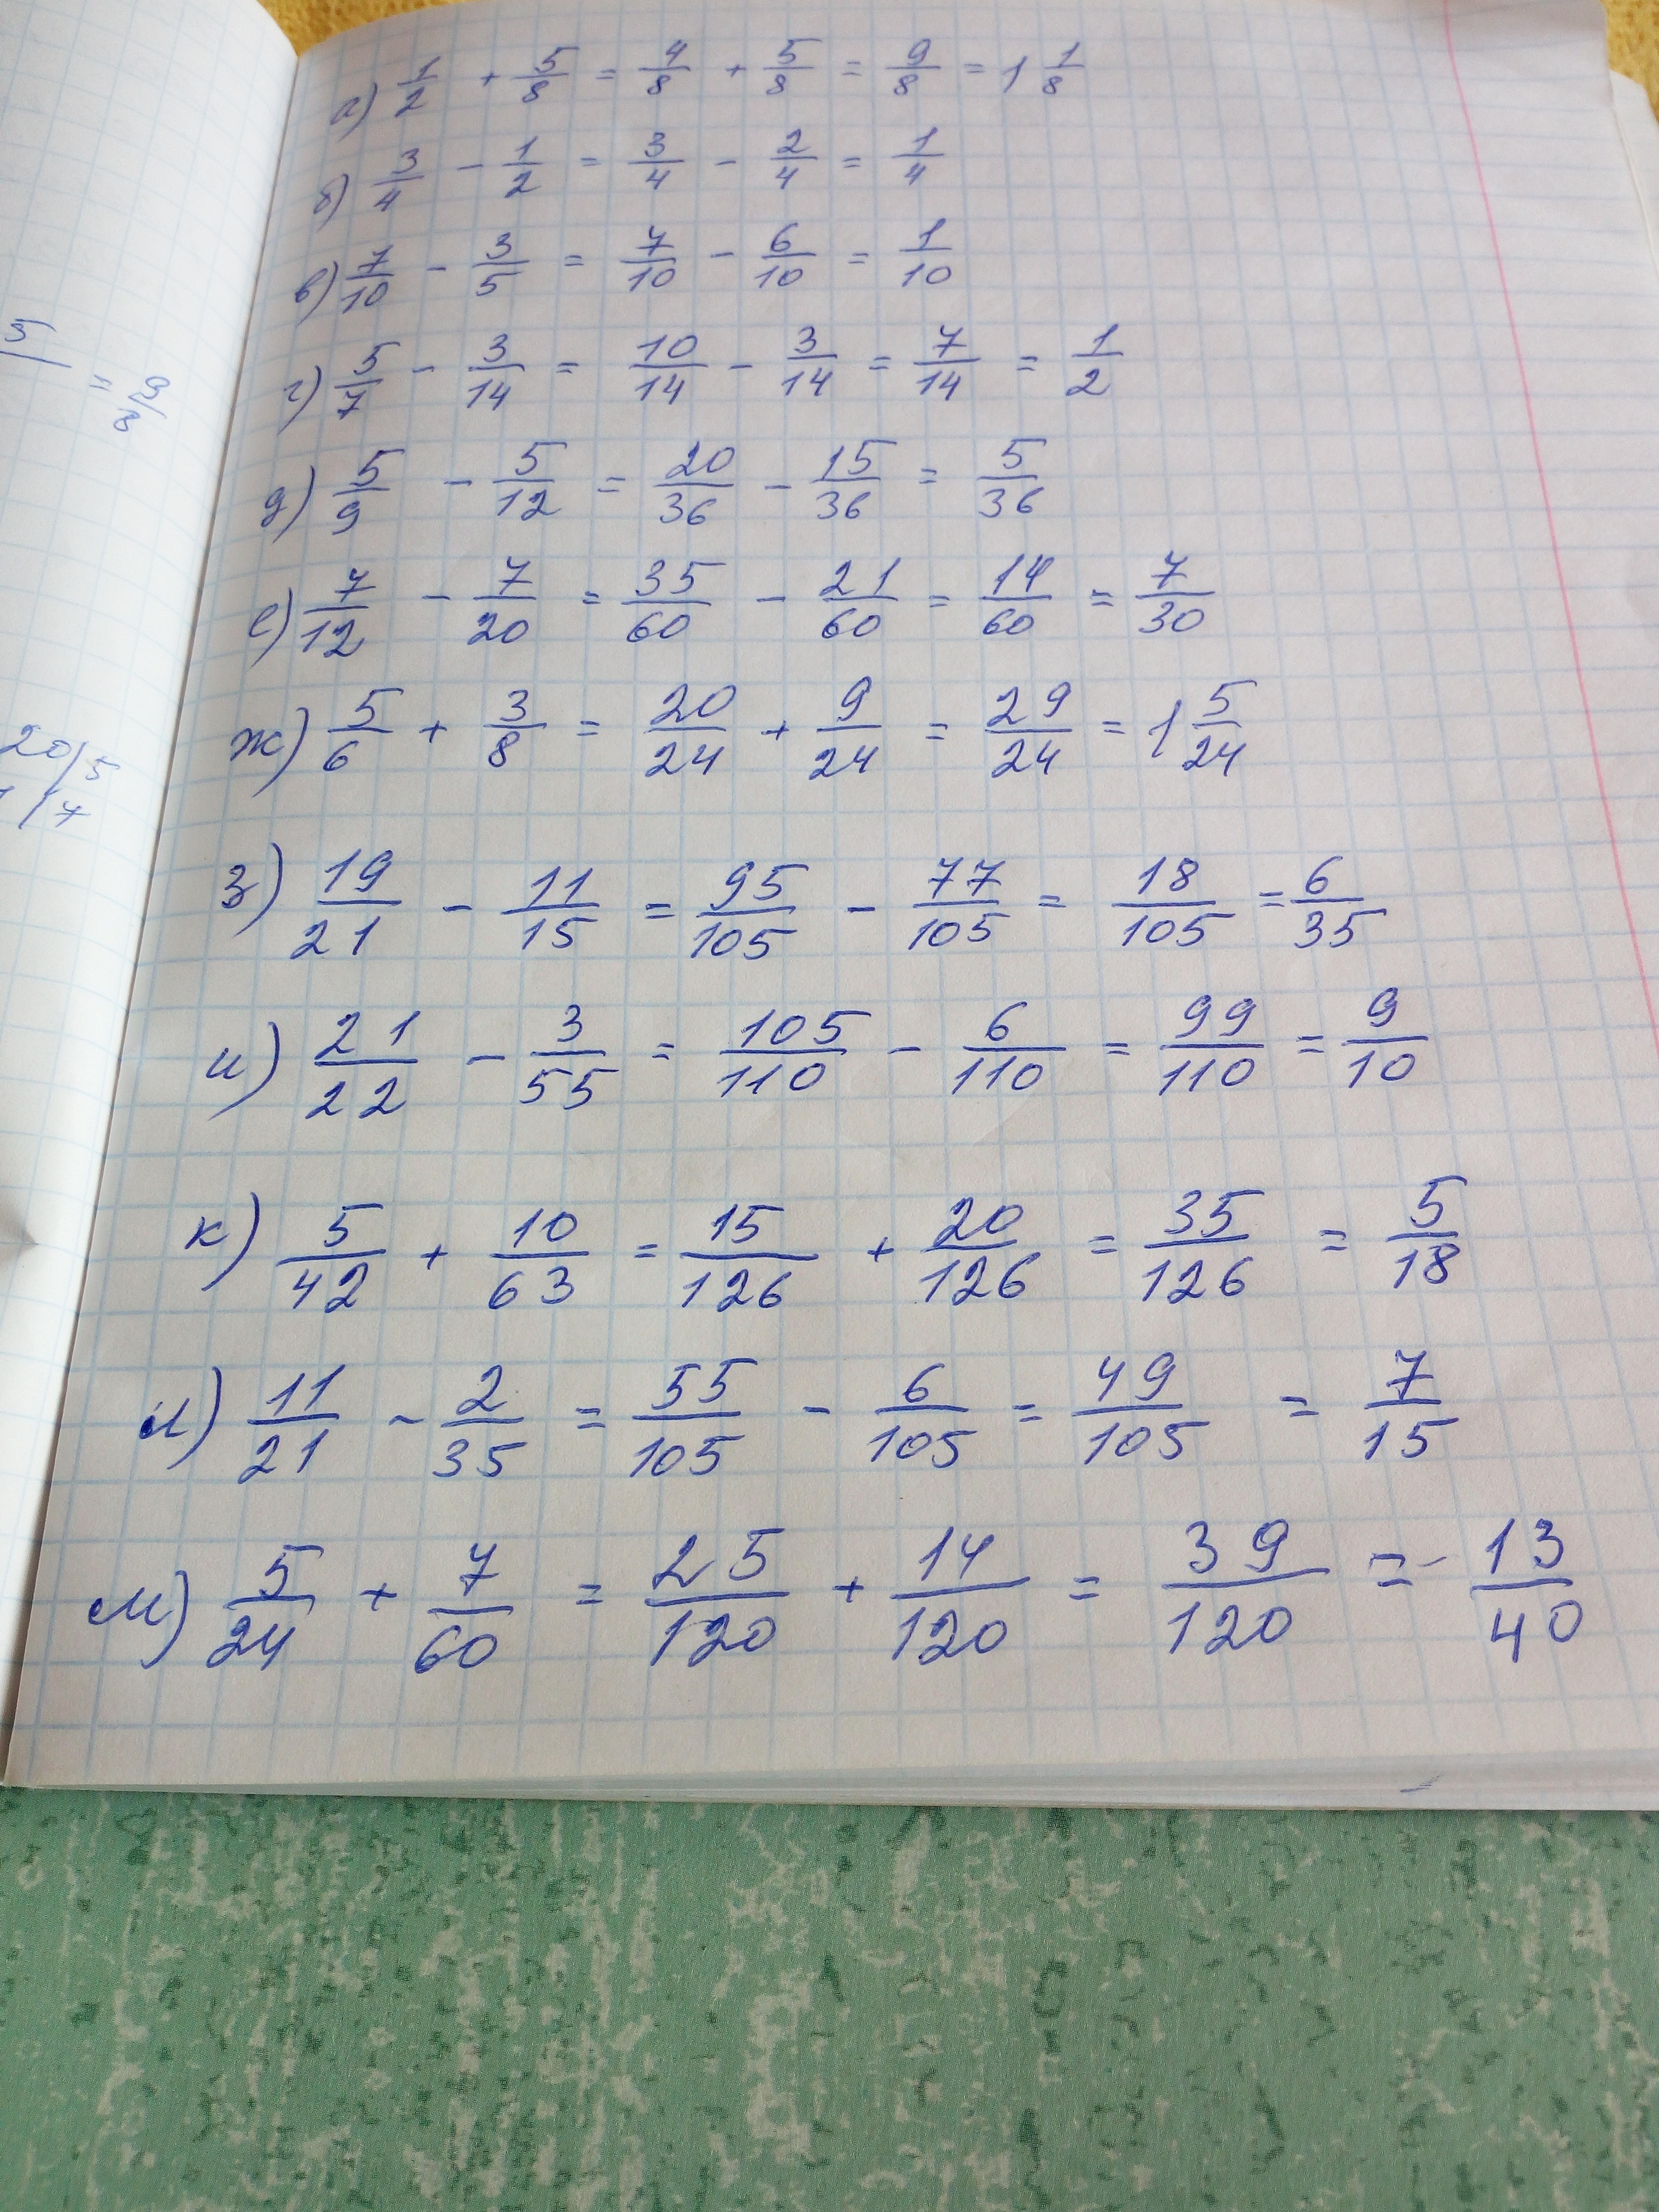 а) 1/2 + 5/8 = 4/8 + 5/8 = 9/8 = 1 1/8
б) 3/4 - 1/2 = 3/4 - 2/4 = 1/4
в) 7/10 - 3/5 = 7/10 - 6/10 = 1/10
г) 5/7 - 3/14 = 10/14 - 3/14 = 7/14 = 1/2
д) 5/9 - 5/12 = 20/36 - 15/36 = 5/36
е) 7/12 - 7/20 = 35/60 - 21/60 = 14/60 = 7/30
ж) 5/6 + 3/8 = 20/24 + 9/24 = 29/24 = 1 5/24
з) 19/21 - 11/15 = 95/105 - 77/105 = 18/105 = 6/35
и) 21/22 - 3/55 = 105/110 - 6/110 = 99/110 = 9/10
к) 5/42 + 10/63 = 15/126 + 20/126 = 35/126 = 5/18
л) 11/21 - 2/35 = 55/105 - 6/105 = 49/105 = 7/15
м) 5/24 + 7/60 = 25/120 + 14/120 = 39/120 = 13/40